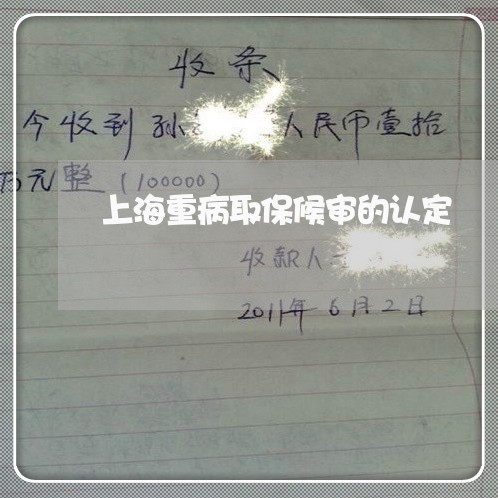 收条
今收到孙 人民币壹拾
万元整（100000）
上海重病取保候审的认定
收款人
2011年6月2日